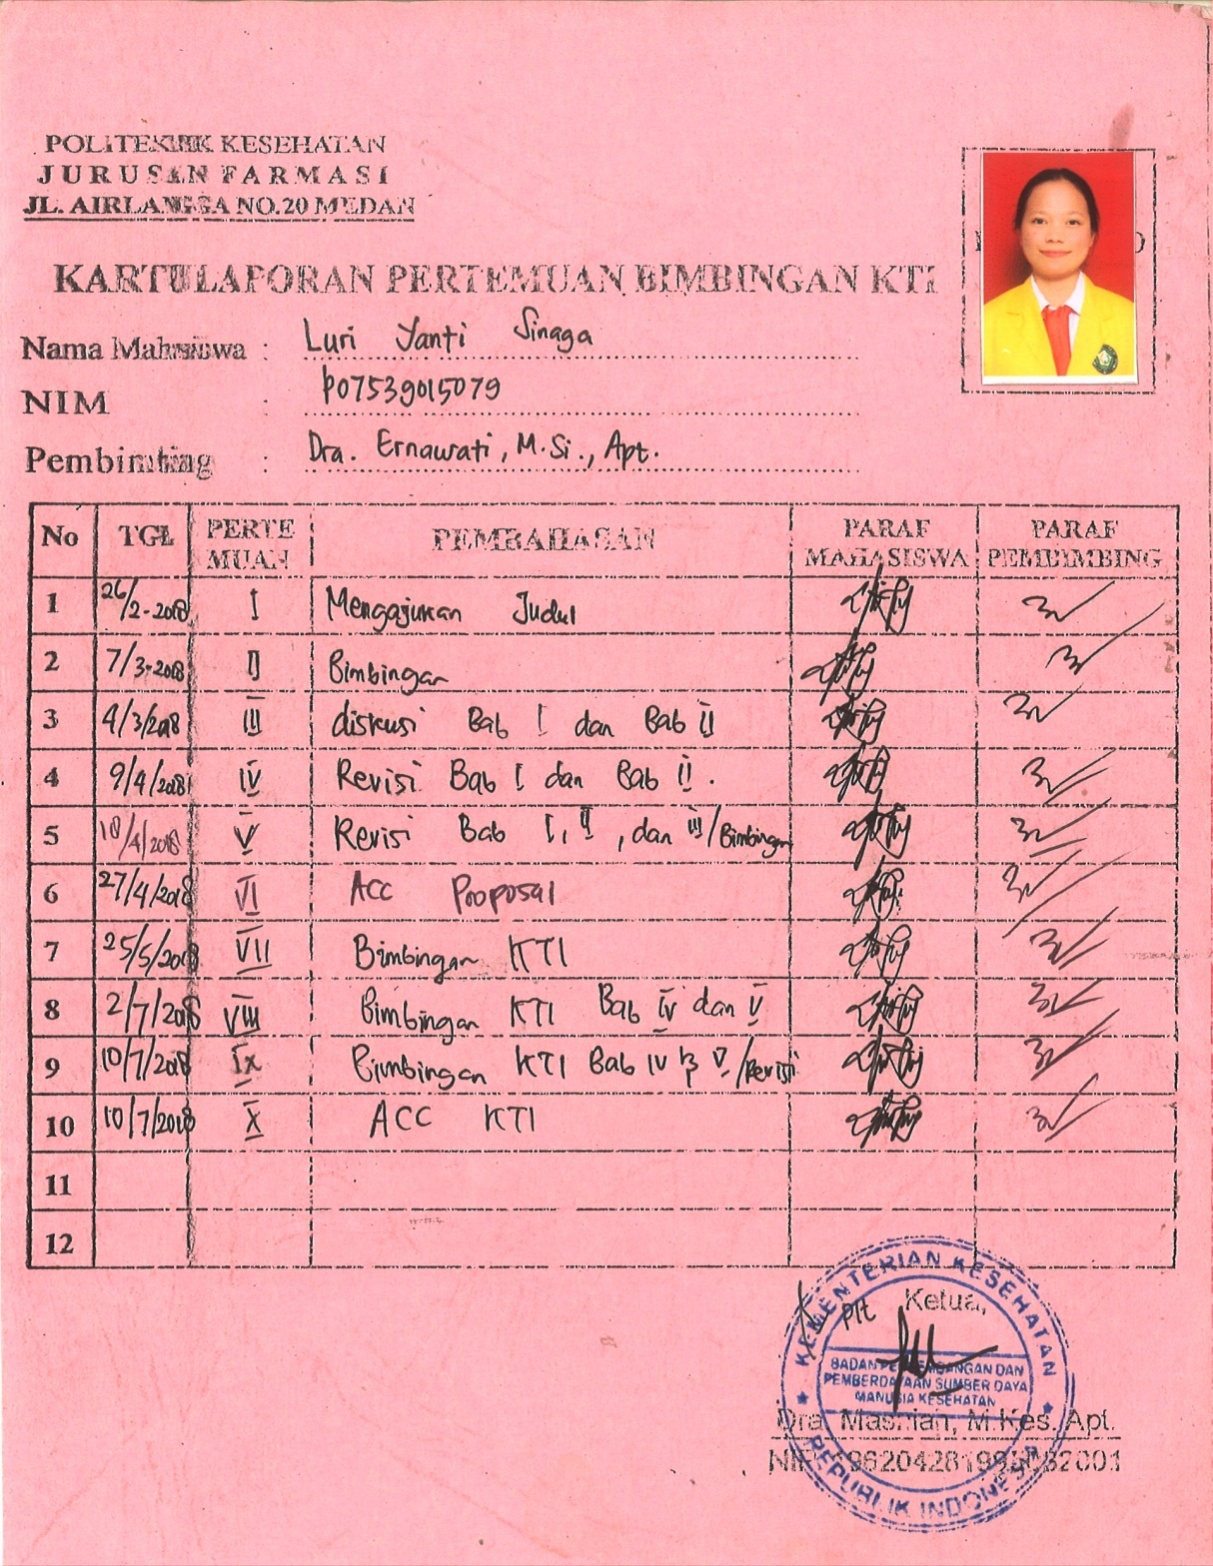 POLITEKNIK KESEHATAN
JURUSAN FARMASI
JL. AIRLANGGA NO.20 MEDAN
KARTU LAPORAN PERTEMUAN BIMBINGAN KTI
Nama Mahasiswa : Luri Yanti Sinaga
NIM : P07539015079
Pembimbing : Dra. Ernawati, M.Si., Apt.
No TGL PERTE MUAN PEMBAHASAN PARAF MAHASISWA PARAF PEMBIMBING
1 26/2-2018 I Mengajukan Judul
2 7/3-2018 II Bimbingan
3 4/3/2018 III diskusi Bab I dan Bab II
4 9/4/2018 IV Revisi Bab I dan Bab II.
5 18/4/2018 V Revisi Bab I, II, dan III/Bimbingan
6 27/4/2018 VI ACC Proposal
7 25/5/2018 VII Bimbingan KTI
8 2/7/2018 VIII Bimbingan KTI Bab IV dan V
9 10/7/2018 IX Bimbingan KTI Bab IV & V/Revisi
10 10/7/2018 X ACC KTI
11
12
Plt Ketua,
KEMENTERIAN KESEHATAN
BADAN PENGEMBANGAN DAN
PEMBERDAYAAN SUMBER DAYA
MANUSIA KESEHATAN
REPUBLIK INDONESIA
Dra. Masniah, M.Kes. Apt.
NIP.